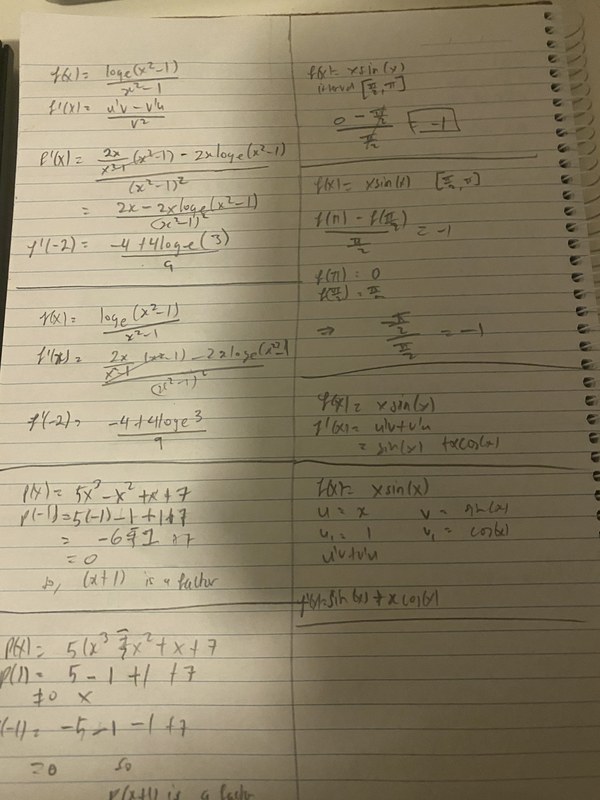 f(x) = loge(x²-1) / x²-1
f'(x) = u'v - v'u / v²
f'(x) = 2x/x²-1 (x²-1) - 2x loge(x²-1) / (x²-1)²
= 2x - 2x loge(x²-1) / (x²-1)²
f'(-2) = -4 + 4 loge(3) / 9
f(x) = loge(x²-1) / x²-1
f'(x) = 2x/x²-1 (x²-1) - 2x loge(x²-1) / (x²-1)²
f'(-2) = -4 + 4 loge 3 / 9
P(x) = 5x³ - x² + x + 7
P(-1) = 5(-1) - 1 + 1 + 7
= -6 - 1 + 7
= 0
so, (x+1) is a factor
P(x) = 5(x³ - x² + x + 7
P(1) = 5 - 1 + 1 + 7
≠0 x
(-1) = -5 - 1 - 1 + 7
= 0 so
P(x+1) is a factor
f(x) = x sin(x)
interval [π/2, π]
0 - π/2 / π/2 = -1
f(x) = x sin(x) [π/2, π]
f(π) - f(π/2) / π/2 = -1
f(π) = 0
f(π/2) = π/2
⇒ -π/2 / π/2 = -1
f(x) = x sin(x)
f'(x) = u'v + v'u
= sin(x) + x cos(x)
f(x) = x sin(x)
u = x v = sin(x)
u₁ = 1 v₁ = cos(x)
u'v + v'u
f'(x) = sin(x) + x cos(x)